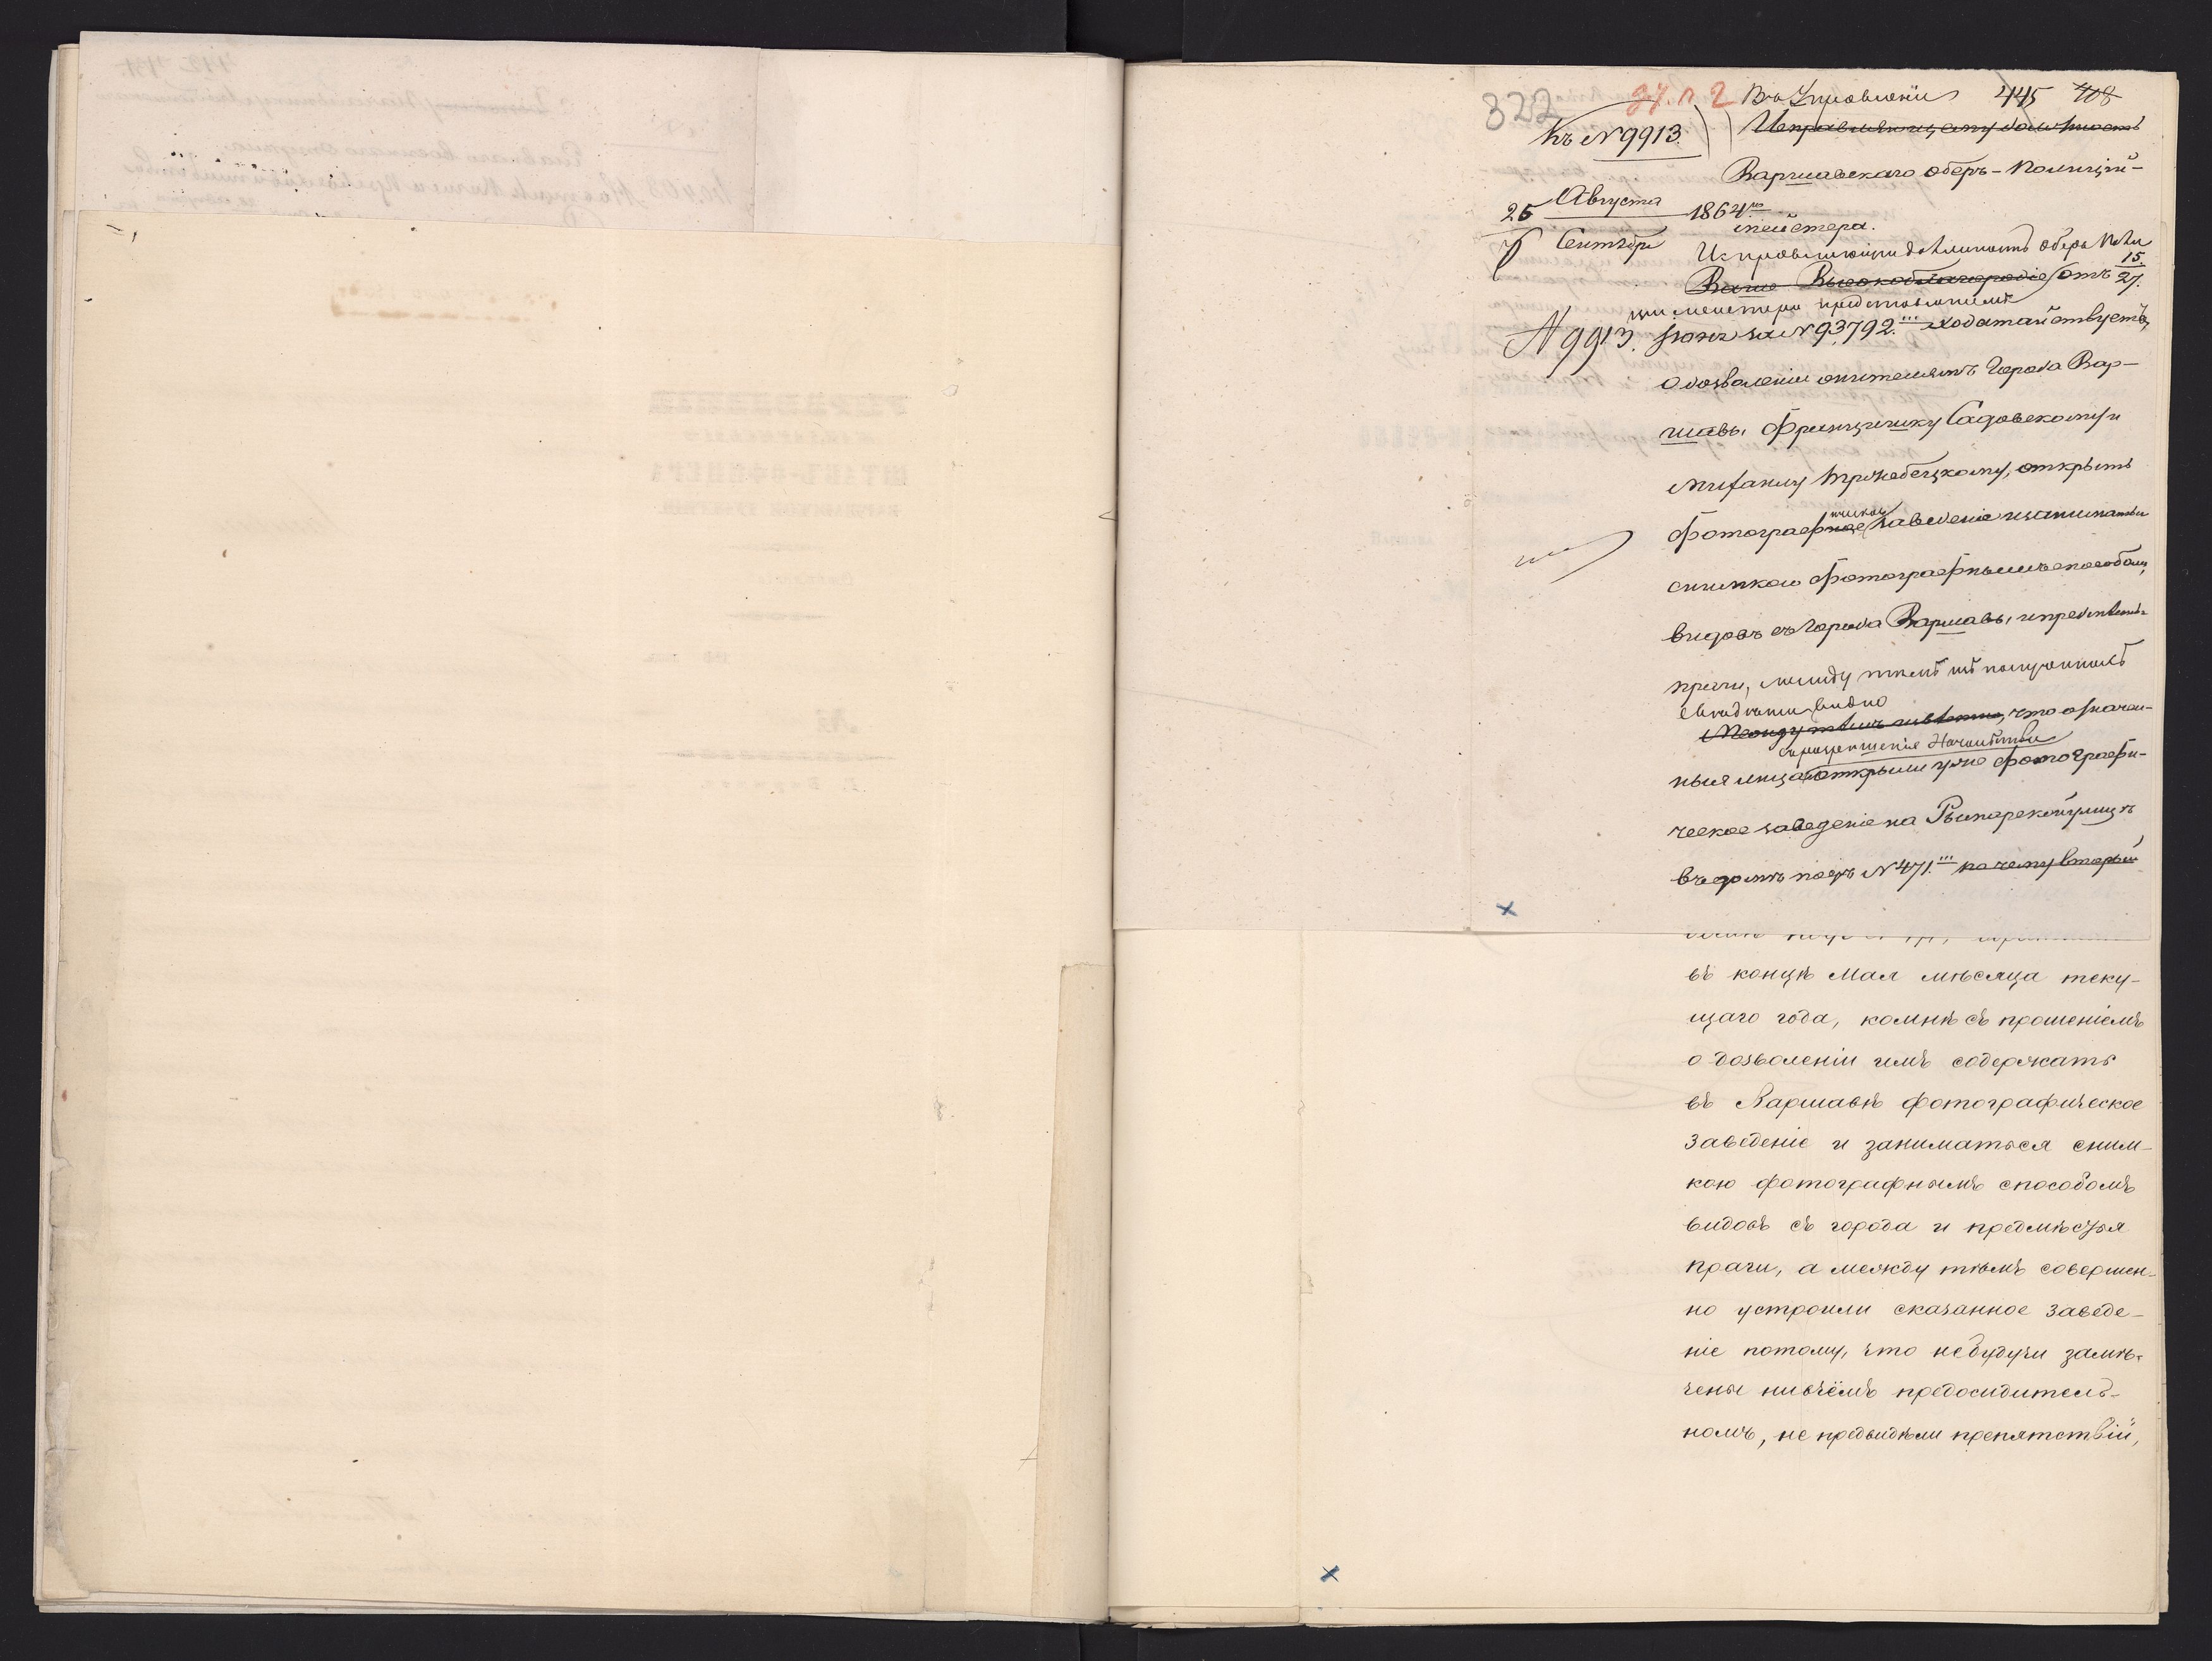 322
Въ Управленіи 445 408
Къ № 9913.
Исправляющему должность
Варшавскаго Оберъ-Полицій-
мейстера.
26 Августа 1864 го
7 Сентября
Исправляющій должность Оберъ Поли
Ваше Высокоблагородіе отъ 15/27.
ціймейстера представленіемъ
№ 9913.
за № 93792. ходатайствуетъ
о дозволеніи жителямъ города Вар-
шавы Францишку Садовскому и
Михаилу Тржебецкому, открыть
ческое
фотографное заведеніе и заниматься
снимкою фотографнымъ способомъ
видовъ съ города Варшавы и предмѣстья
Праги, между тѣмъ изъ полученныхъ
свѣдѣній видно
Между тѣмъ извѣстно, что означен-
безъ разрѣшенія Начальства
ныя лица открыли уже фотографи-
ческое заведеніе на Рымарской улицѣ
въ домѣ подъ № 471. почему вторый
въ концѣ Мая мѣсяца теку-
щаго года, ко мнѣ съ прошеніемъ
о дозволеніи имъ содержать
въ Варшавѣ фотографическое
заведеніе и заниматься сним-
кою фотографнымъ способомъ
видовъ съ города и предмѣстья
Праги, а между тѣмъ совершен-
но устроили сказанное заведе-
ніе потому, что небудучи замѣ-
чены ни въ чёмъ предосудитель-
номъ, не предвидѣли препятствій,